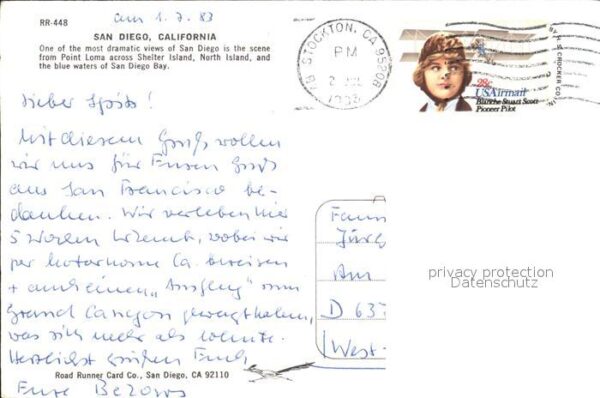 am 1.7.83
RR-448
SAN DIEGO, CALIFORNIA
One of the most dramatic views of San Diego is the scene
from Point Loma across Shelter Island, North Island, and
the blue waters of San Diego Bay.
STOCKTON, CA 95208
PM
2
1983
28c
USAirmail
Blanche Stuart Scott
Pioneer Pilot
BY H.S. CROCKER CO. IN.
Lieber
Mit diesem Gruß wollen
wir uns für Euren Gruß
aus San Francisco be-
danken. Wir verleben hier
5 Wochen Urlaub, wobei wir
per Motorhome Ca. bereisen
+ auch einen "Ausflug" zum
Grand Canyon gewagt haben,
was sich mehr als lohnte.
Herzlichst grüßen Euch
Eure
Fam
Jürg
Am
D 637
West-
privacy protection
Datenschutz
Road Runner Card Co., San Diego, CA 92110